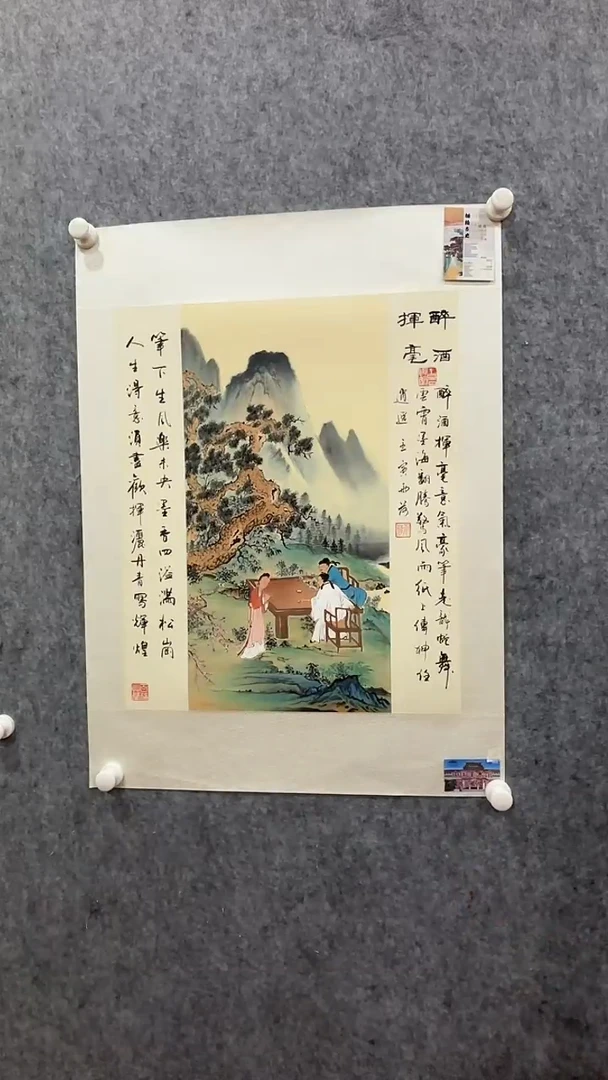 醉酒
揮毫
醉酒揮毫意氣豪筆走龍蛇舞
雲霄墨海翻騰驚風雨紙上傳神任
逍遥
筆下生風樂未央墨香四溢滿松崗
人生得意須盡歡揮灑丹青寫輝煌